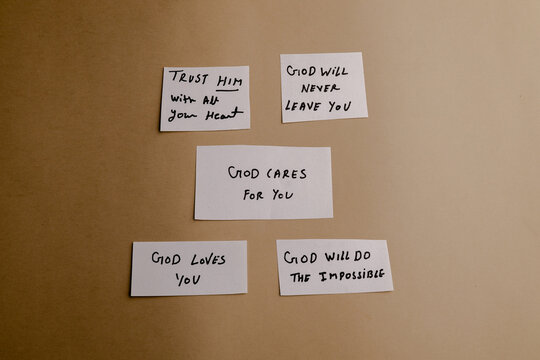 TRUST HIM
with All
your Heart
GOD WILL
NEVER
LEAVE YOU
GOD CARES
FOR YOU
GOD LOVES
YOU
GOD WILL DO
THE IMPOSSIBLE